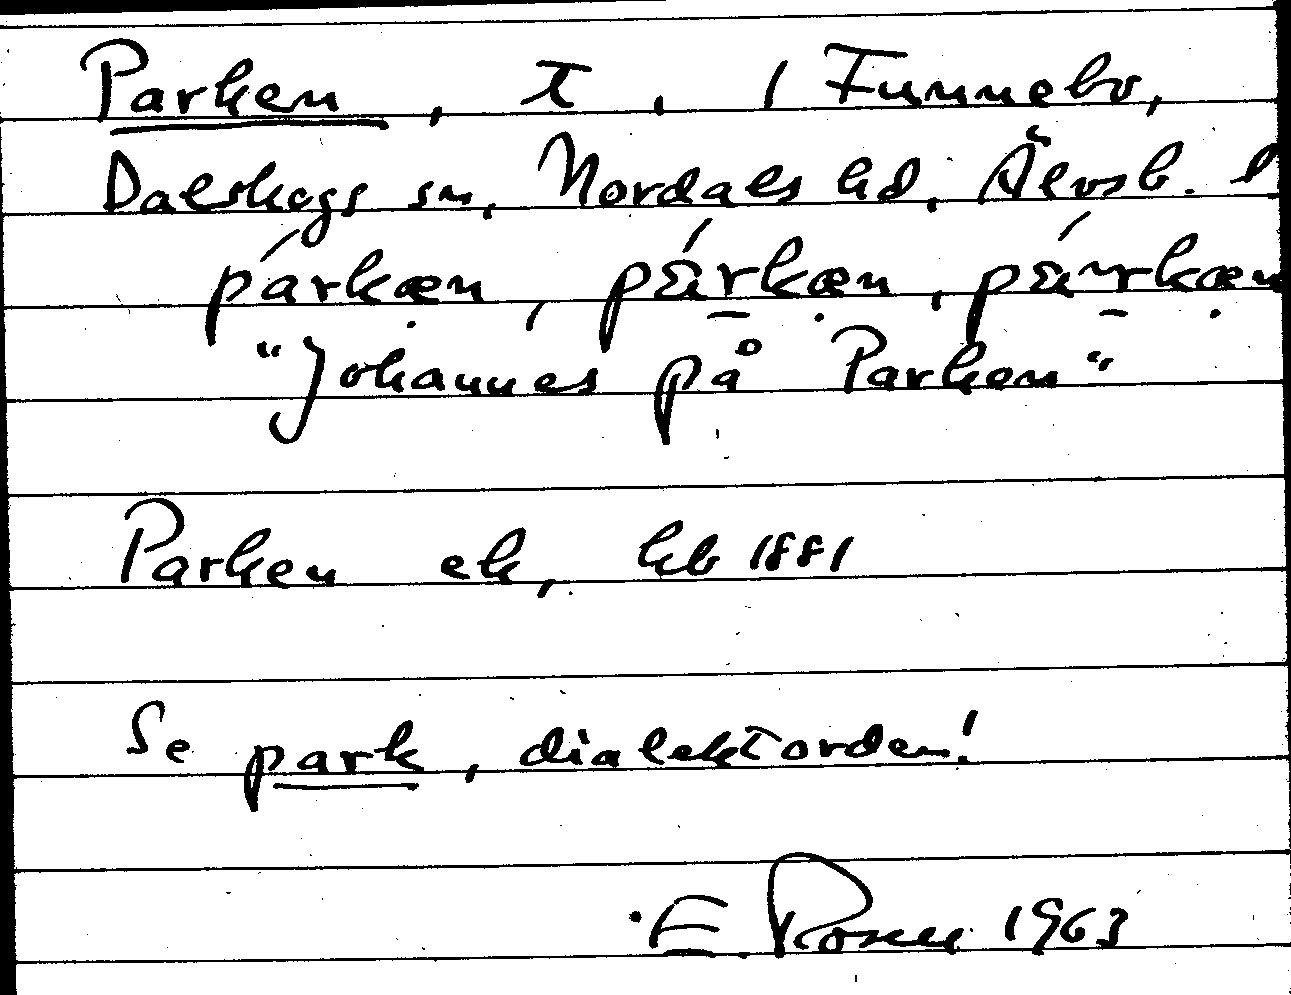 Parken, T, 1 Funnebo,
Dalskogs sn, Nordals hd, Älvsb. l
párkæn, párkæn, párkæn
"Johannes på Parken"
Parken ek, hb 1881
Se park, dialektorden!
E. Rosell 1963